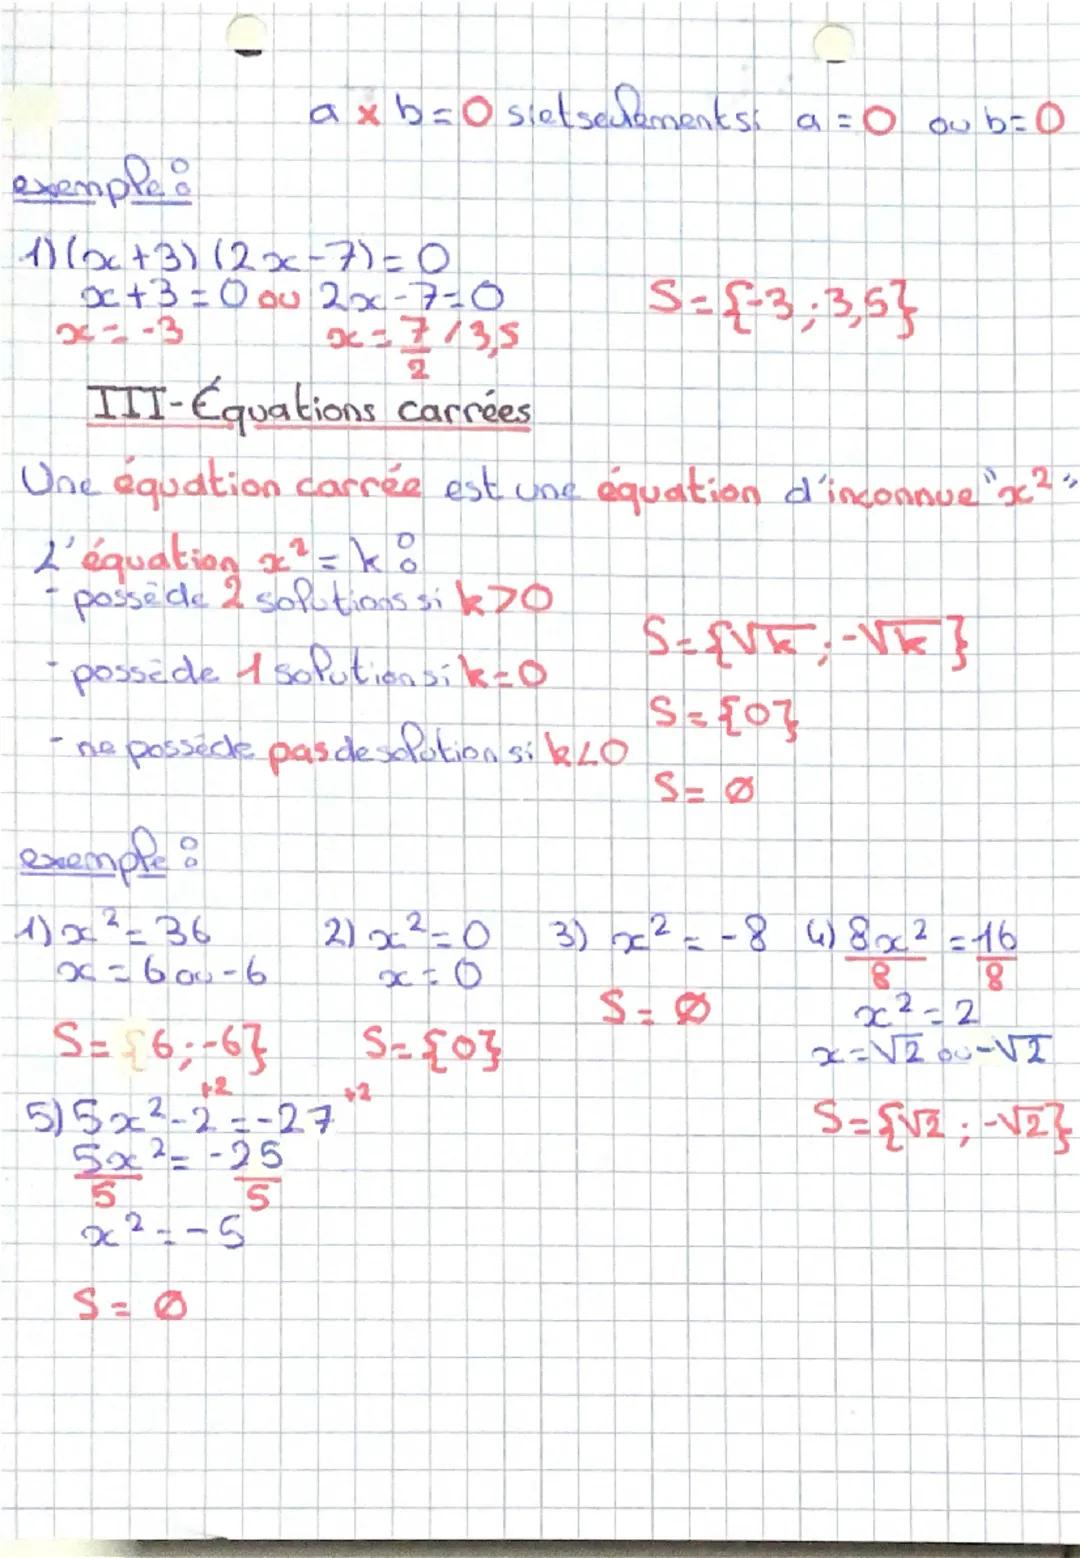 a x b = 0 si et seulement si a = 0 ou b = 0
exemple :
1) (x + 3) (2x - 7) = 0
x + 3 = 0 ou 2x - 7 = 0
x = -3 x = 7/2 / 3,5 S = {-3 ; 3,5}
III - Équations carrées
Une équation carrée est une équation d'inconnue "x²"
L'équation x² = k :
- possède 2 solutions si k > 0 S = {√k ; -√k}
- possède 1 solution si k = 0 S = {0}
- ne possède pas de solution si k < 0 S = ∅
exemple :
1) x² = 36 2) x² = 0 3) x² = -8 4) 8x²/8 = 16/8
x = 6 ou -6 x = 0 S = ∅ x² = 2
x = √2 ou -√2
S = {6 ; -6} S = {0} S = {√2 ; -√2}
5) 5x² - 2 +2 = -27 +2
5x²/5 = -25/5
x² = -5
S = ∅